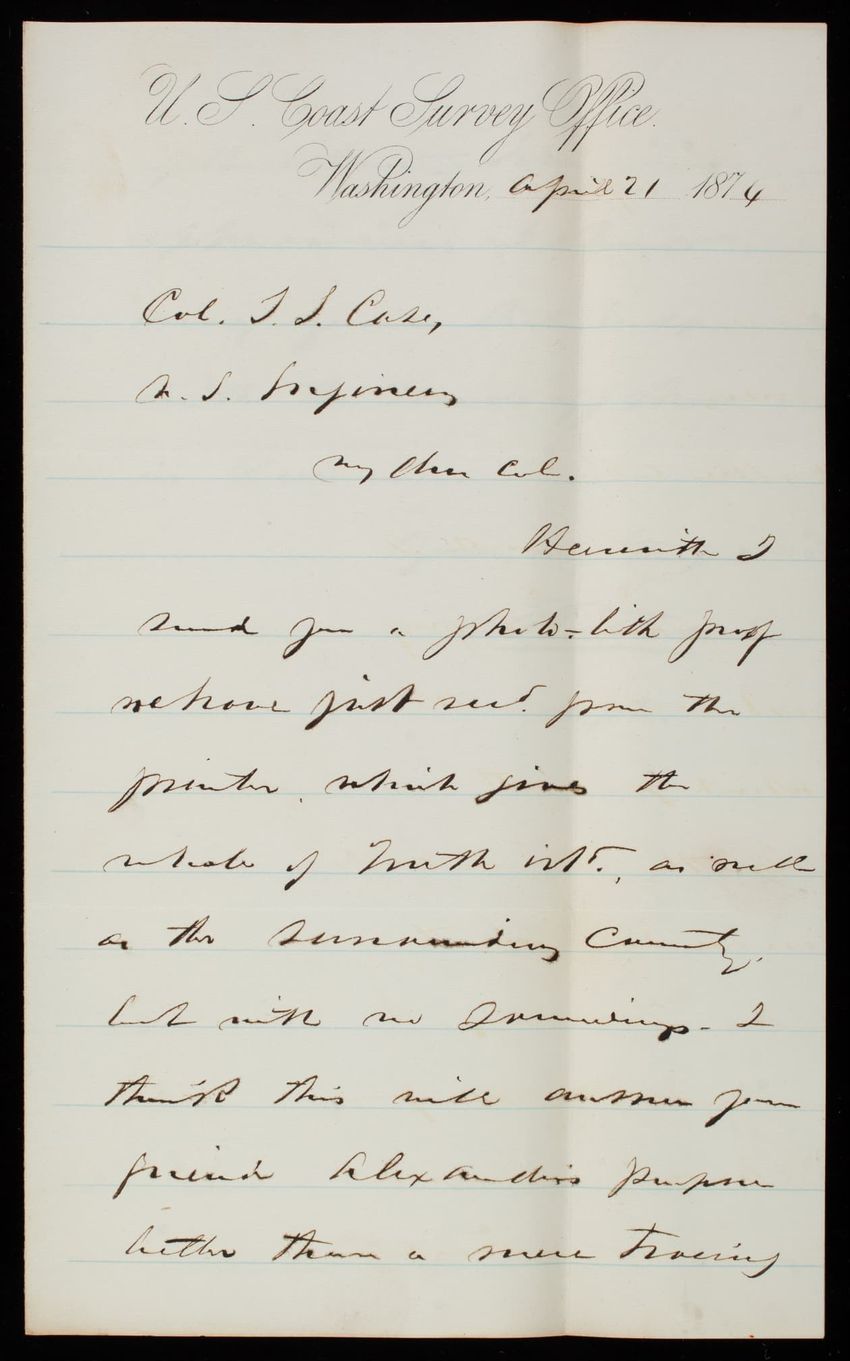 U. S. Coast Survey Office.
Washington, April 21 1874
Col. T. L. Case,
U. S. Engineers
My dear Col.
Herewith I
send you a photo-lith proof
we have just recd. from the
printer, which gives the
whole of as well
as the surrounding country,
but with no soundings - I
think this will answer your
friend Alexander's purpose
better than a mere tracing